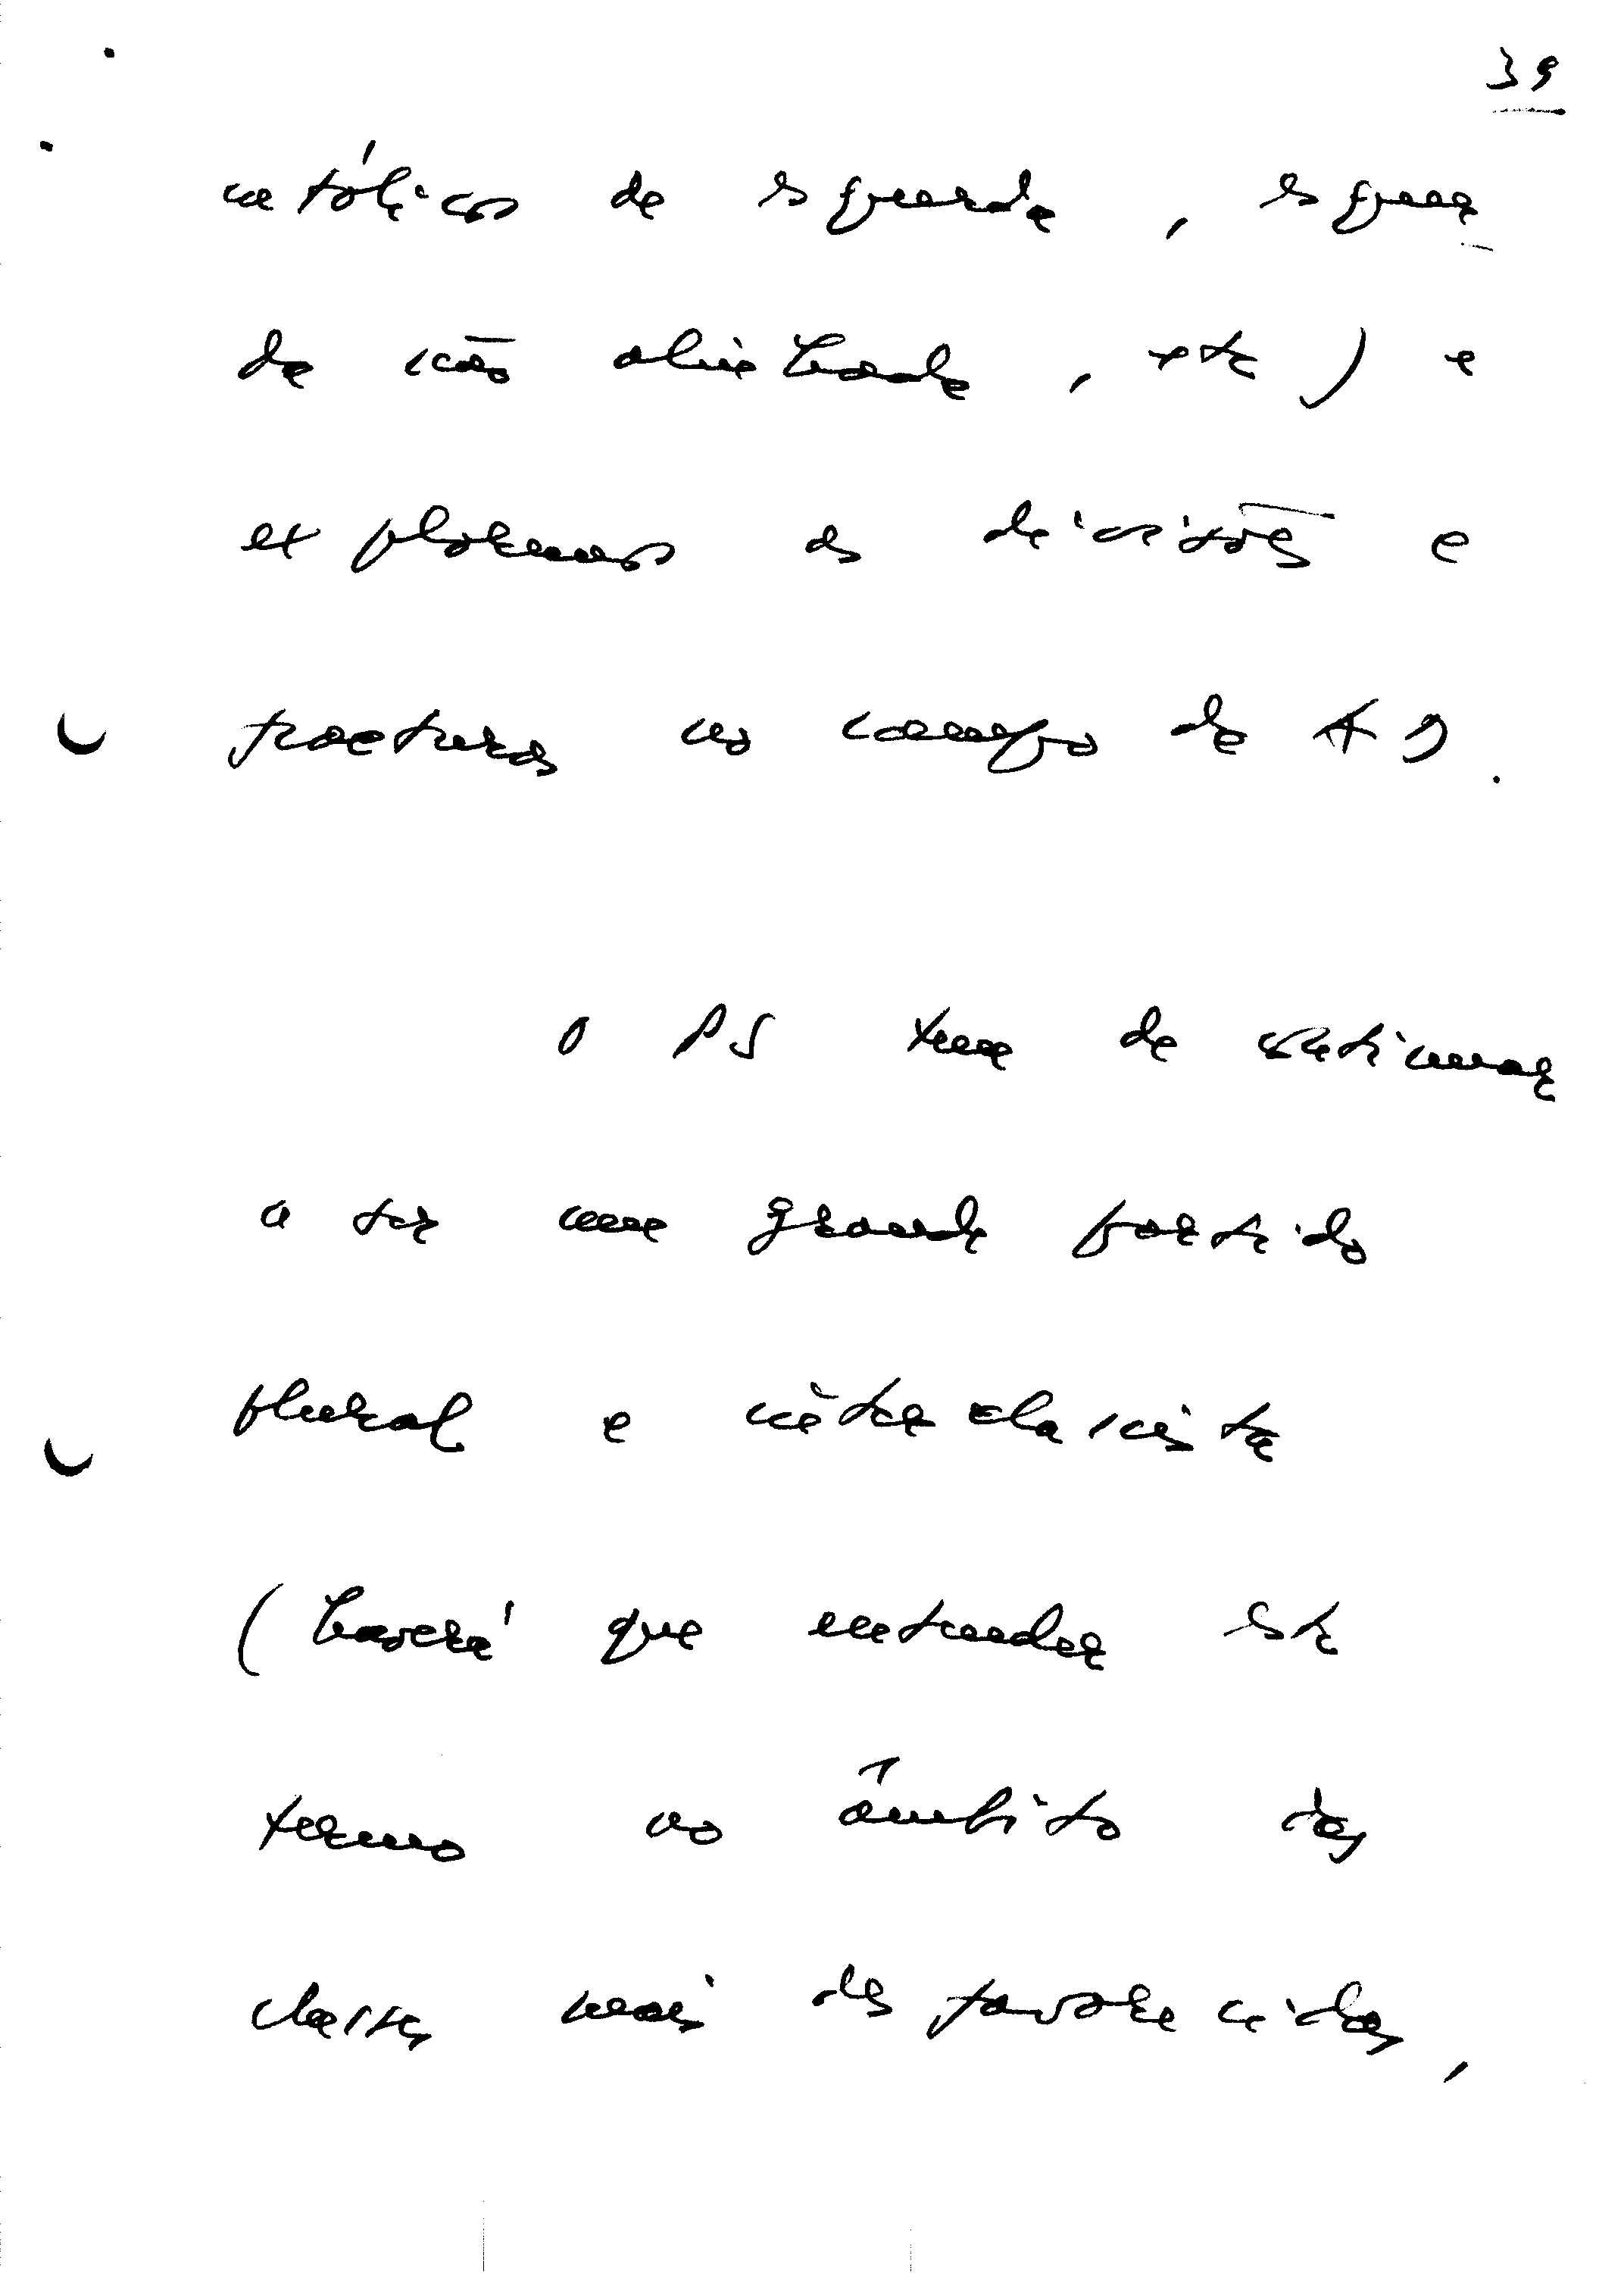 39
católicos de esquerda, esquer
da não alinhada, etc) e
exploremos as divisões e
fracturas no campo da AD.
O PS tem de continuar
a ser um grande partido
plural e interclassista
(haverá que entender este
termo no âmbito das
classes mais desfavorecidas,